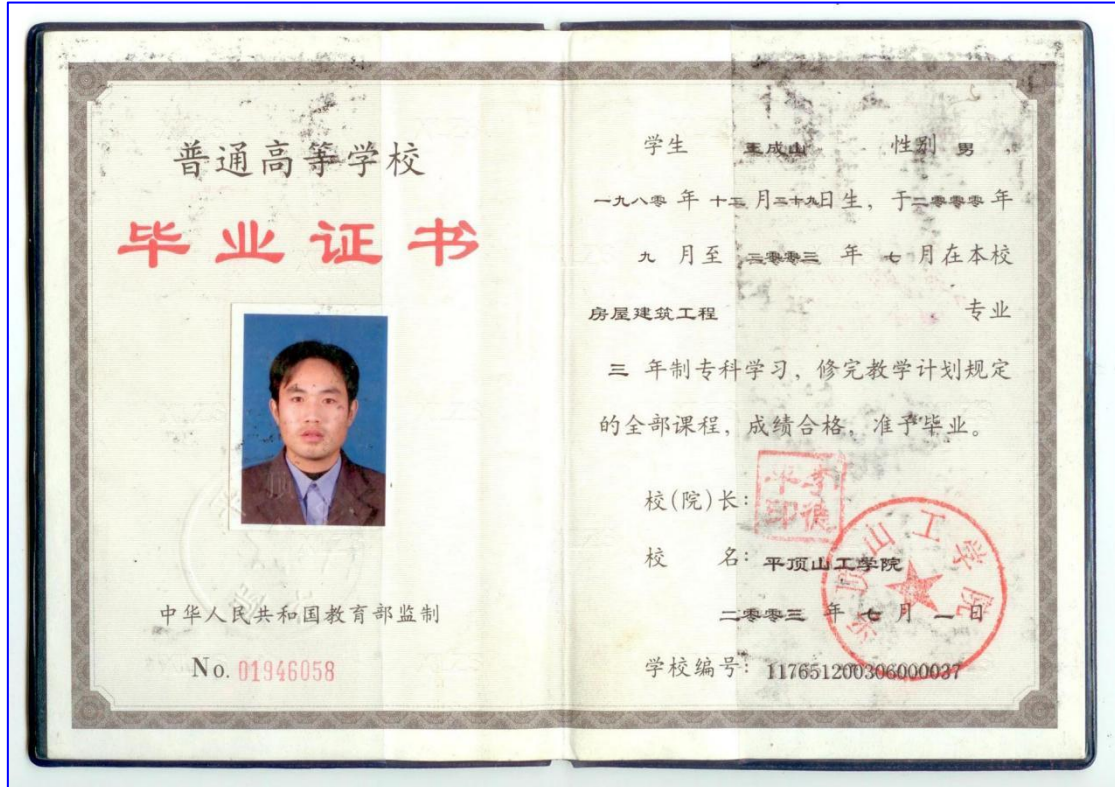 普通高等学校
毕业证书
中华人民共和国教育部监制
No. 01946058
学生 王成山 性别 男,
一九八零 年 十二 月二十九日生, 于二零零零年
九 月至 二零零三 年 七 月在本校
房屋建筑工程 专业
三 年制专科学习, 修完教学计划规定
的全部课程, 成绩合格, 准予毕业。
校(院)长:
校 名: 平顶山工学院
二零零三 年 七 月 一 日
学校编号: 117651200306000037
平顶山工学院